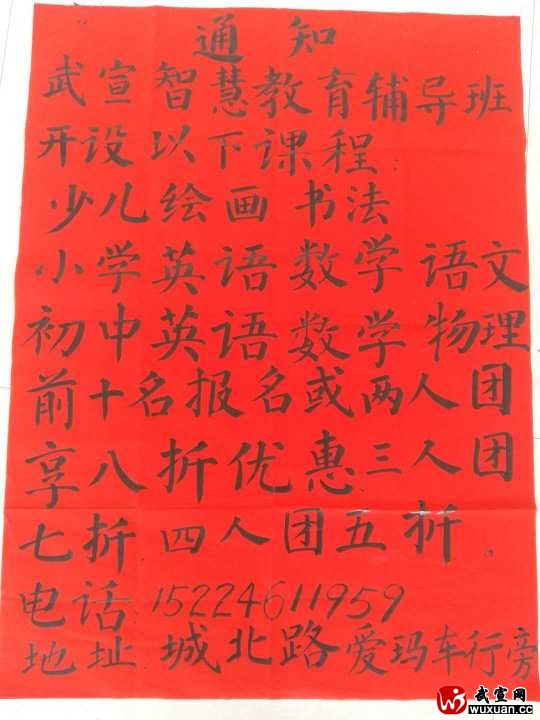 通知
武宣智慧教育辅导班
开设以下课程
少儿绘画 书法
小学英语 数学 语文
初中英语 数学 物理
前十名报名或两人团
享八折优惠三人团
七折 四人团五折
电话 15224611959
地址 城北路爱玛车行旁
武宣网
wuxuan.cc